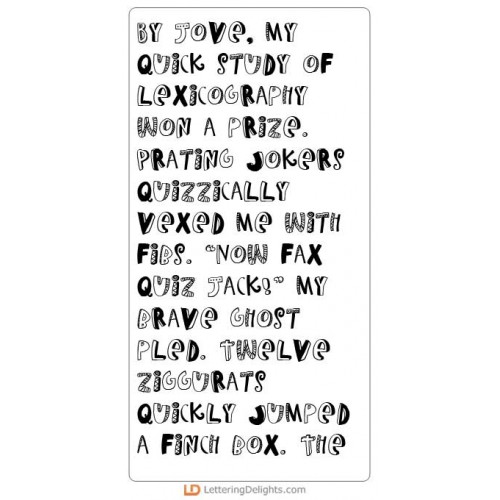 BY JOVE, MY
QUICK STUDY OF
LEXICOGRAPHY
WON A PRIZE.
PRATING JOKERS
QUIZZICALLY
VEXED ME WITH
FIBS. "NOW FAX
QUIZ JACK!" MY
BRAVE GHOST
PLED. TWELVE
ZIGGURATS
QUICKLY JUMPED
A FINCH BOX. THE
LD LetteringDelights.com